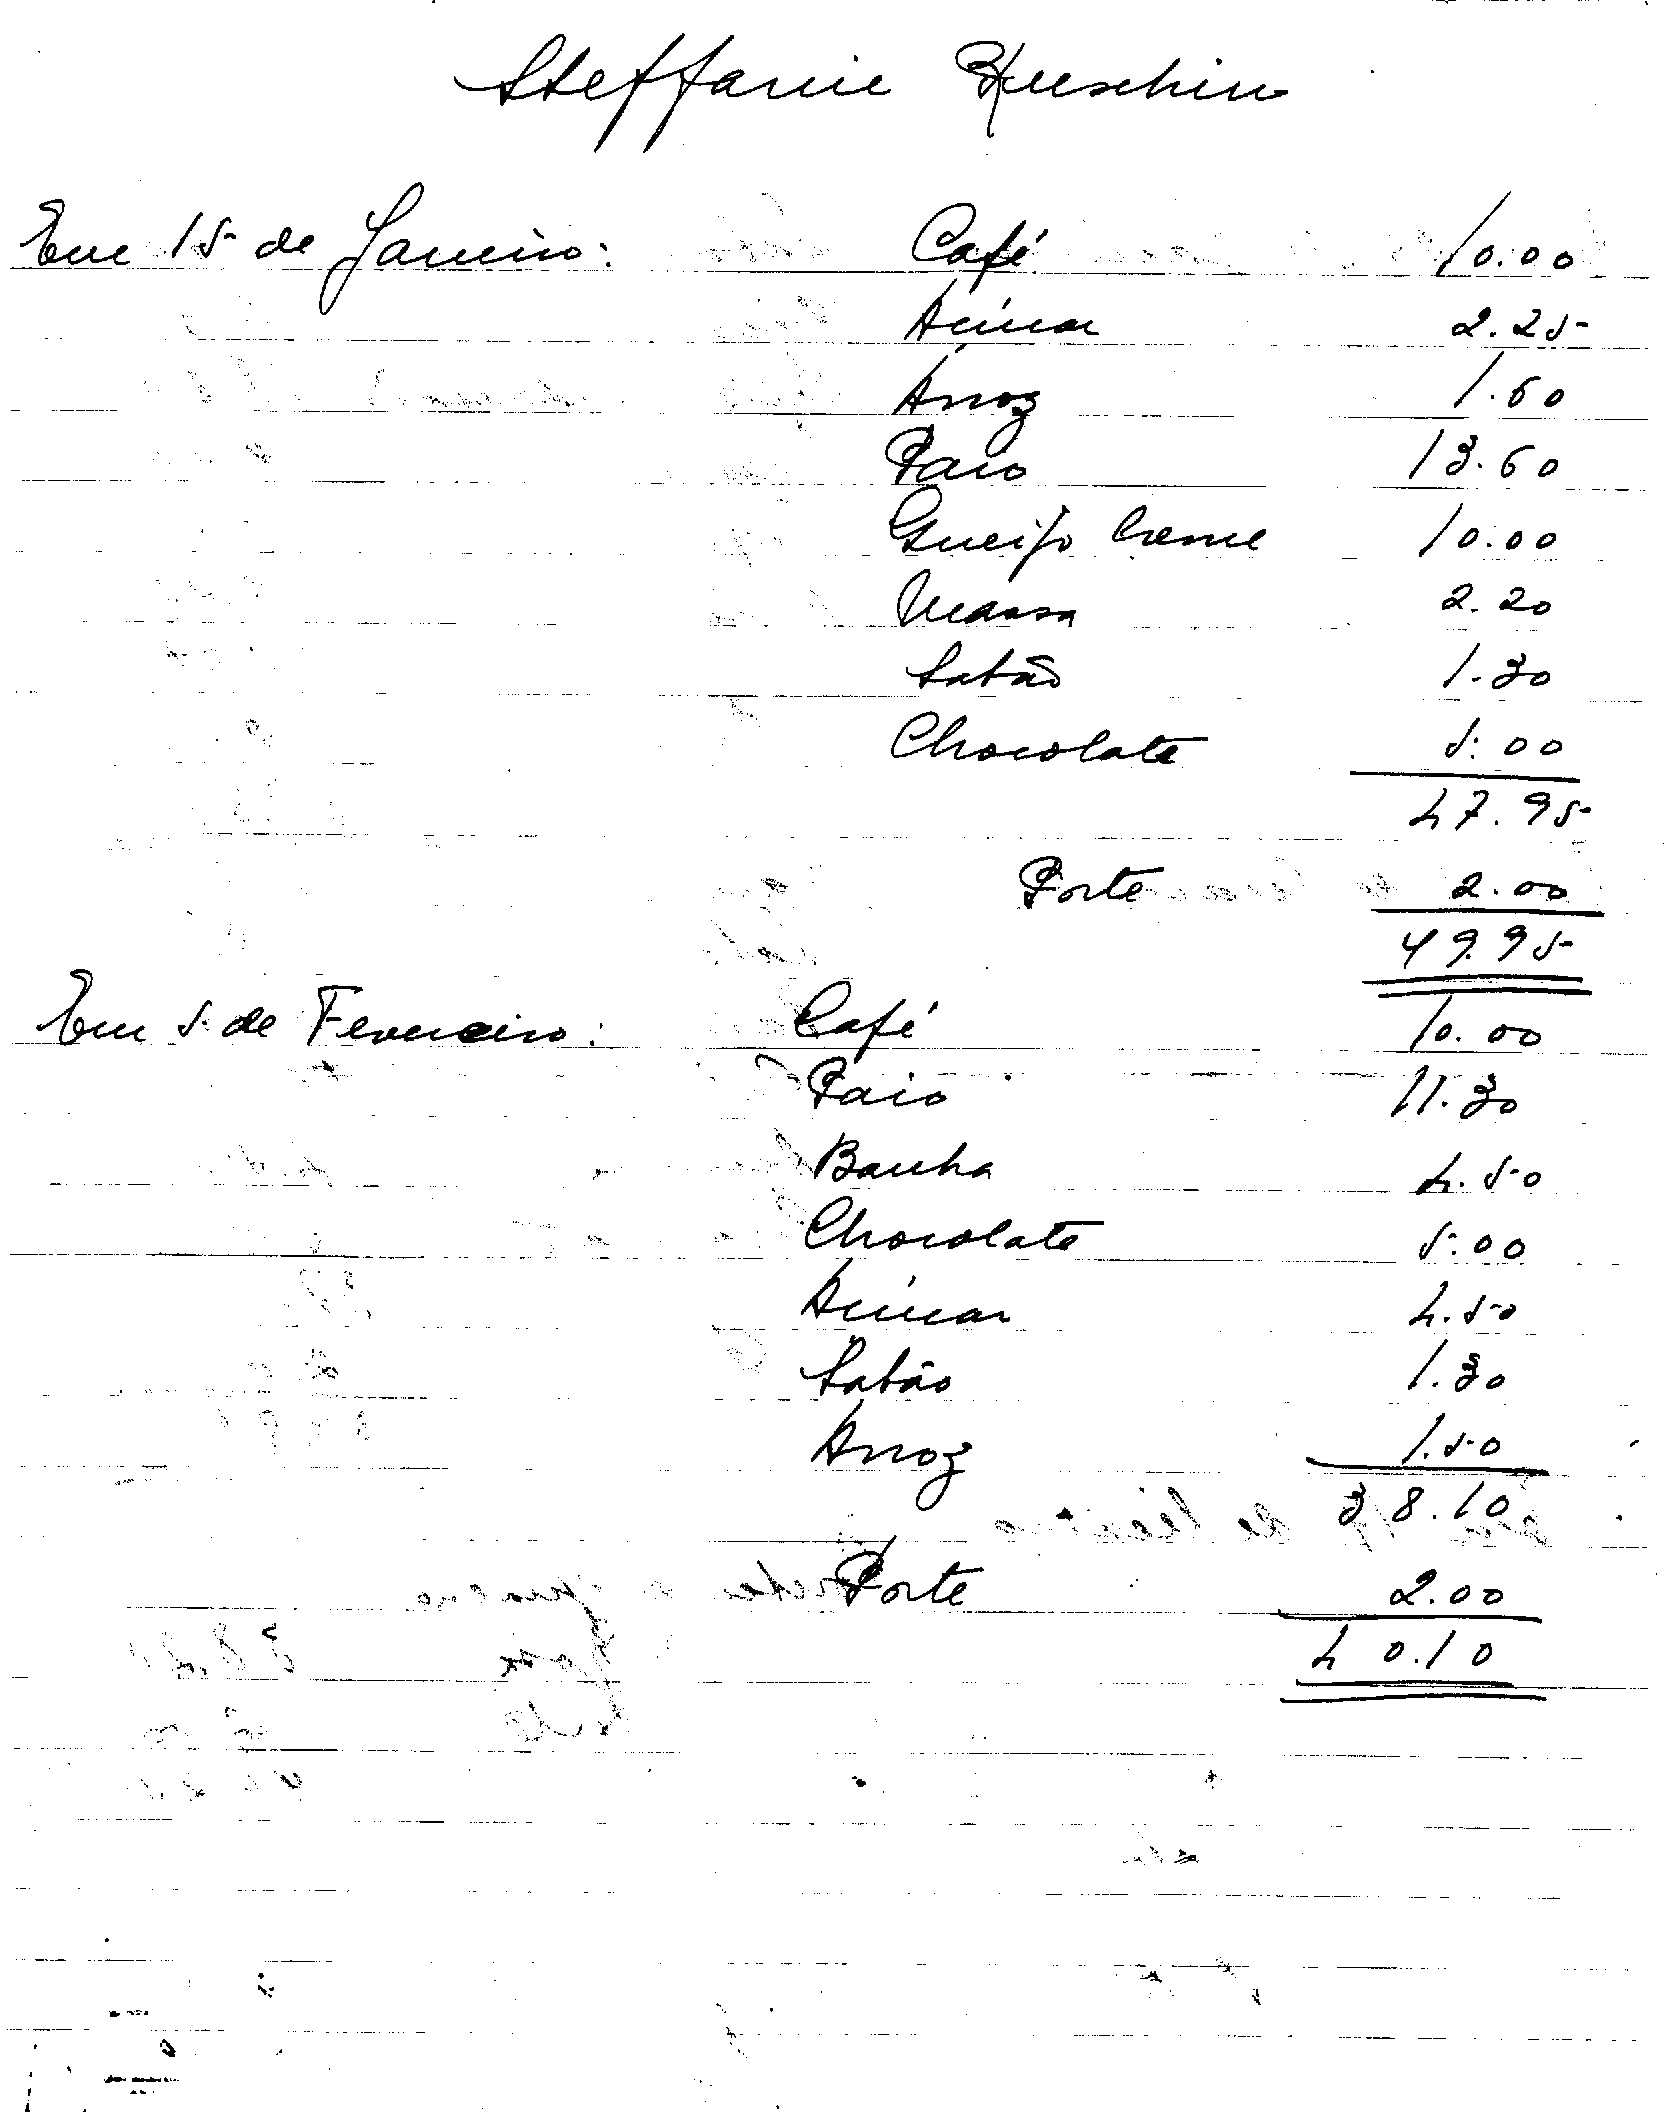 Steffanie
Em 15 de Janeiro: Café 10.00
Açúcar 2.25
Arroz 1.60
Paio 13.60
Queijo Creme 10.00
Massa 2.20
Sabão 1.30
Chocolate 5.00
47.95
Porte 2.00
49.95
Em 5 de Fevereiro: Café 10.00
Paio 11.30
Banha 4.50
Chocolate 5.00
Açúcar 4.50
Sabão 1.30
Arroz 1.50
38.10
Porte 2.00
40.10